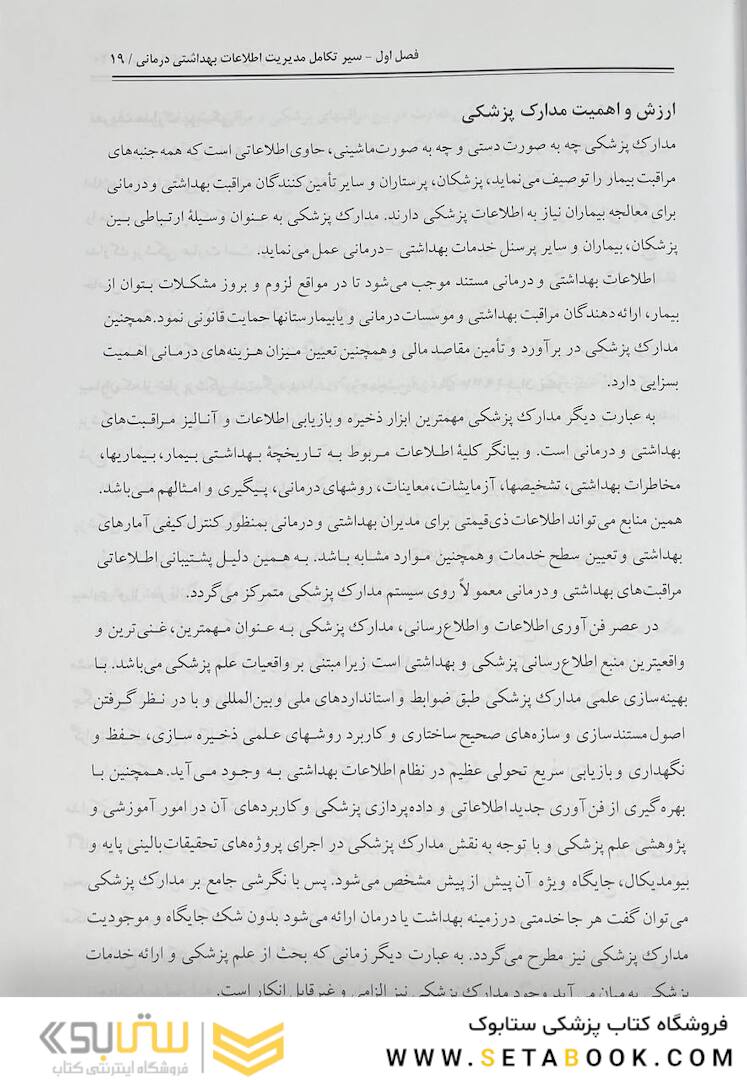 فصل اول – سیر تکامل مدیریت اطلاعات بهداشتی درمانی / ۱۹
ارزش و اهمیت مدارک پزشکی
مدارک پزشکی چه به صورت دستی و چه به صورت‌ماشینی، حاوی‌اطلاعاتی است‌که همه‌جنبه‌های
مراقبت بیمار را توصیف می‌نماید، پزشکان، پرستاران و سایر تأمین‌کنندگان مراقبت بهداشتی و درمانی
برای معالجه بیماران نیاز به اطلاعات پزشکی دارند. مدارک پزشکی به عنوان وسیلۀ ارتباطی بین
پزشکان، بیماران و سایر پرسنل خدمات بهداشتی –درمانی عمل می‌نماید.
اطلاعات بهداشتی و درمانی مستند موجب می‌شود تا در مواقع لزوم و بروز مشکلات بتوان از
بیمار، ارائه‌دهندگان مراقبت بهداشتی و موسسات درمانی و یابیمارستانها حمایت قانونی نمود.همچنین
مدارک پزشکی در برآورد و تأمین مقاصد مالی و همچنین تعیین میزان هزینه‌های درمانی اهمیت
بسزایی دارد.
به عبارت دیگر مدارک پزشکی مهمترین ابزار ذخیره و بازیابی اطلاعات و آنالیز مراقبت‌های
بهداشتی و درمانی است. و بیانگر کلیۀ اطلاعات مربوط به تاریخچۀ بهداشتی بیمار، بیماریها،
مخاطرات بهداشتی، تشخیصها، آزمایشات،معاینات، روشهای درمانی، پیگیری و امثالهم می‌باشد.
همین منابع می‌تواند اطلاعات ذی‌قیمتی برای مدیران بهداشتی و درمانی بمنظور کنترل‌کیفی آمارهای
بهداشتی و تعیین سطح خدمات و همچنین موارد مشابه باشد. به همین دلیل پشتیبانی اطلاعاتی
مراقبت‌های بهداشتی و درمانی معمولاً روی سیستم مدارک پزشکی متمرکز می‌گردد.
در عصر فن آوری اطلاعات و اطلاع‌رسانی، مدارک پزشکی به عنوان مهمترین، غنی‌ترین و
واقعیترین منبع اطلاع‌رسانی پزشکی و بهداشتی است زیرا مبتنی بر واقعیات علم پزشکی می‌باشد. با
بهینه‌سازی علمی مدارک پزشکی طبق ضوابط و استانداردهای ملی وبین‌المللی و با در نظر گرفتن
اصول مستندسازی و سازه‌های صحیح ساختاری و کاربرد روشهای علمی ذخیره سازی، حفظ و
نگهداری و بازیابی سریع تحولی عظیم در نظام اطلاعات بهداشتی به وجود می‌آید. همچنین با
بهره گیری از فن آوری جدید اطلاعاتی و داده‌پردازی پزشکی و کاربردهای آن در امور آموزشی و
پژوهشی علم پزشکی و با توجه به نقش مدارک پزشکی در اجرای پروژه‌های تحقیقات‌بالینی پایه و
بیومدیکال، جایگاه ویژه آن پیش از پیش مشخص می‌شود. پس با نگرشی جامع بر مدارک پزشکی
می‌توان گفت هر جا خدمتی در زمینه بهداشت یا درمان ارائه می‌شود بدون شک جایگاه و موجودیت
مدارک پزشکی نیز مطرح می‌گردد. به عبارت دیگر زمانی که بحث از علم پزشکی و ارائه خدمات
پزشکی به میان می آید وجود مدارک پزشکی نیز الزامی و غیرقابل انکار است.
فروشگاه کتاب پزشکی ستابوک
WWW.SETABOOK.COM
ستابوک
فروشگاه اینترنتی کتاب